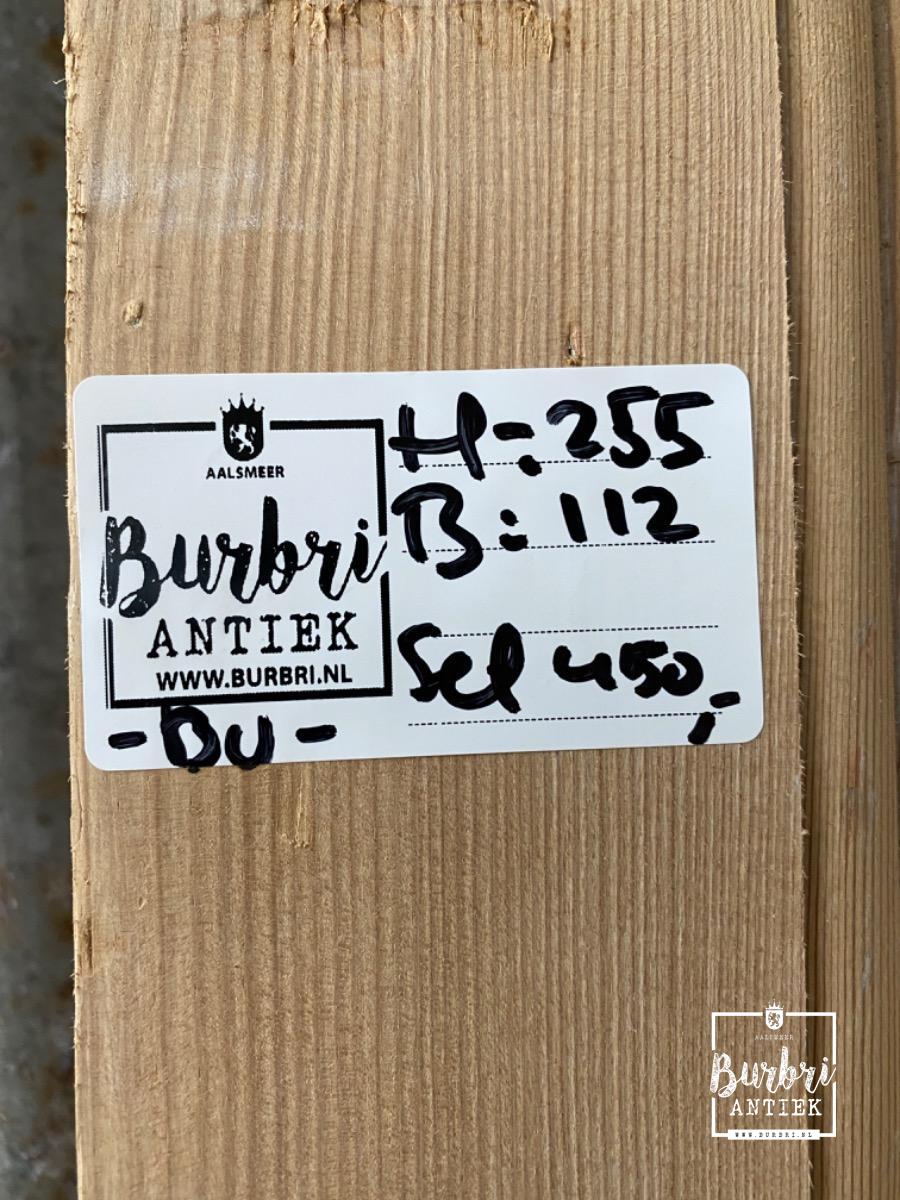 AALSMEER
Burbri
ANTIEK
WWW.BURBRI.NL
- Du -
H: 255
B: 112
Sel 450,-
AALSMEER
Burbri
ANTIEK
WWW.BURBRI.NL